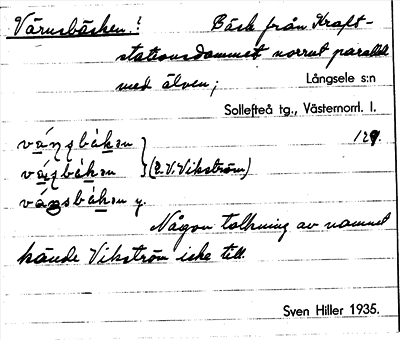 Värnsbäcken.! Bäck från Kraft-
stationsdammet norrut parallellt
med älven; Långsele s:n
Sollefteå tg., Västernorrl. l.
129.
(E.V. Vikström)
y.
Någon tolkning av namnet
kände Vikström icke till.
Sven Hiller 1935.